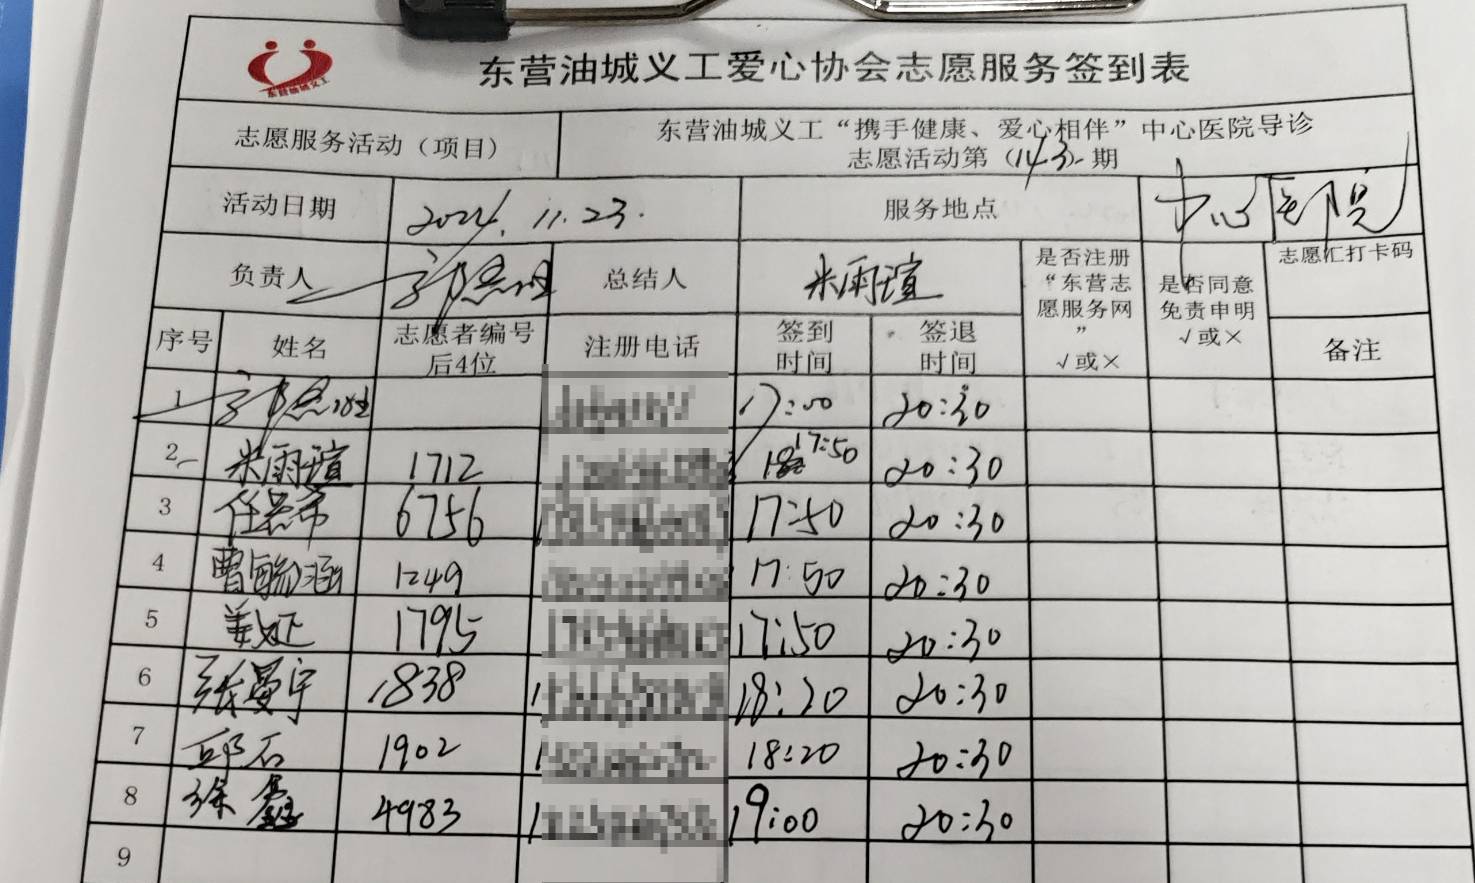 东营油城义工
东营油城义工爱心协会志愿服务签到表
志愿服务活动（项目）
东营油城义工“携手健康、爱心相伴”中心医院导诊
志愿活动第（143）期
活动日期 2024.11.23. 服务地点 中心医院
负责人 总结人 米雨瑄 是否注册“东营志愿服务网”√或× 是否同意免责申明√或× 志愿汇打卡码
序号 姓名 志愿者编号后4位 注册电话 签到时间 签退时间 备注
1 17:00 20:30
2 米雨瑄 1712 17:50 20:30
3 任 6756 17:50 20:30
4 曹毓涵 1249 17:50 20:30
5 姜延 1795 17:50 20:30
6 张曼宇 1838 18:20 20:30
7 邱石 1902 18:20 20:30
8 徐鑫 4983 19:00 20:30
9